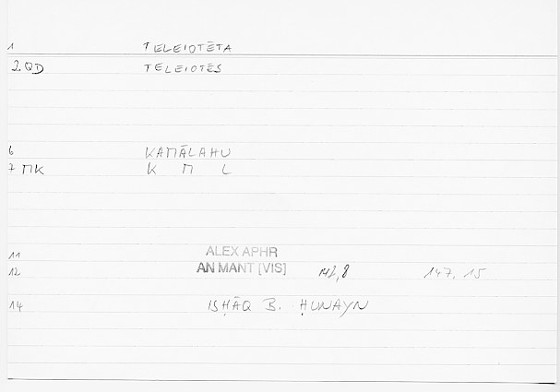 1 TELEIOTĒTA
2 QD TELEIOTĒS
6 KAMĀLAHU
7 MK K M L
11 ALEX APHR
12 AN MANT [VIS] 142,8 147.15
14 ISḤĀQ B. ḤUNAYN